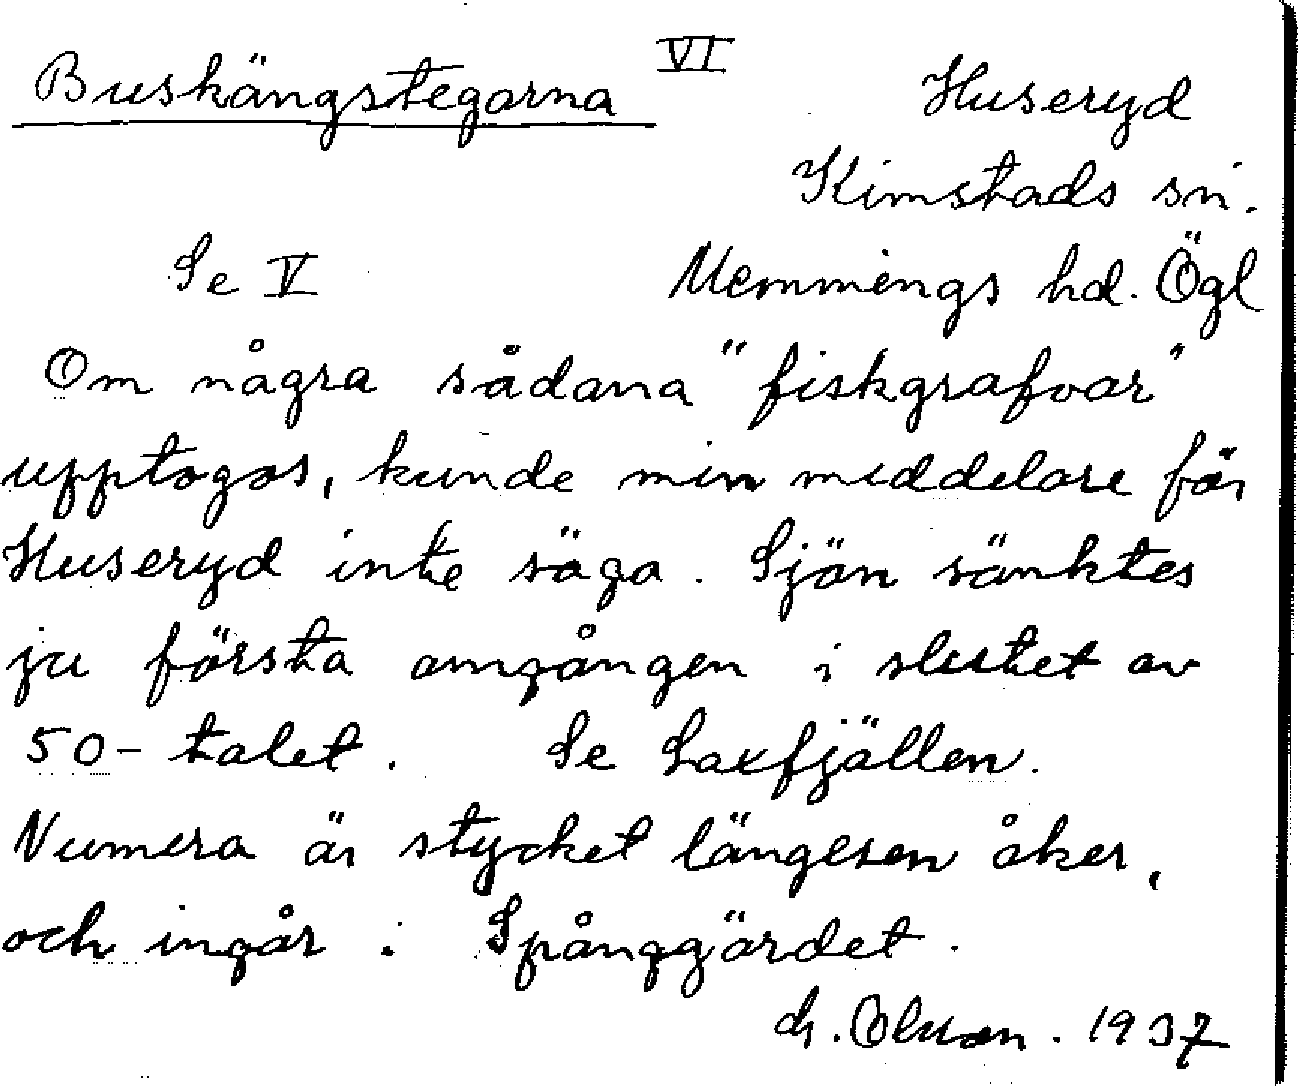 Buskängstegarna VI Huseryd
Kimstads sn.
Se V Memmings hd. Ögl
Om några sådana "fiskgrafvar"
upptogos, kunde min meddelare för
Huseryd inte säga. Sjön sänktes
ju första omgången i slutet av
50-talet. Se Laxfjällen.
Numera är stycket längesen åker,
och ingår i Spånggärdet.
1937